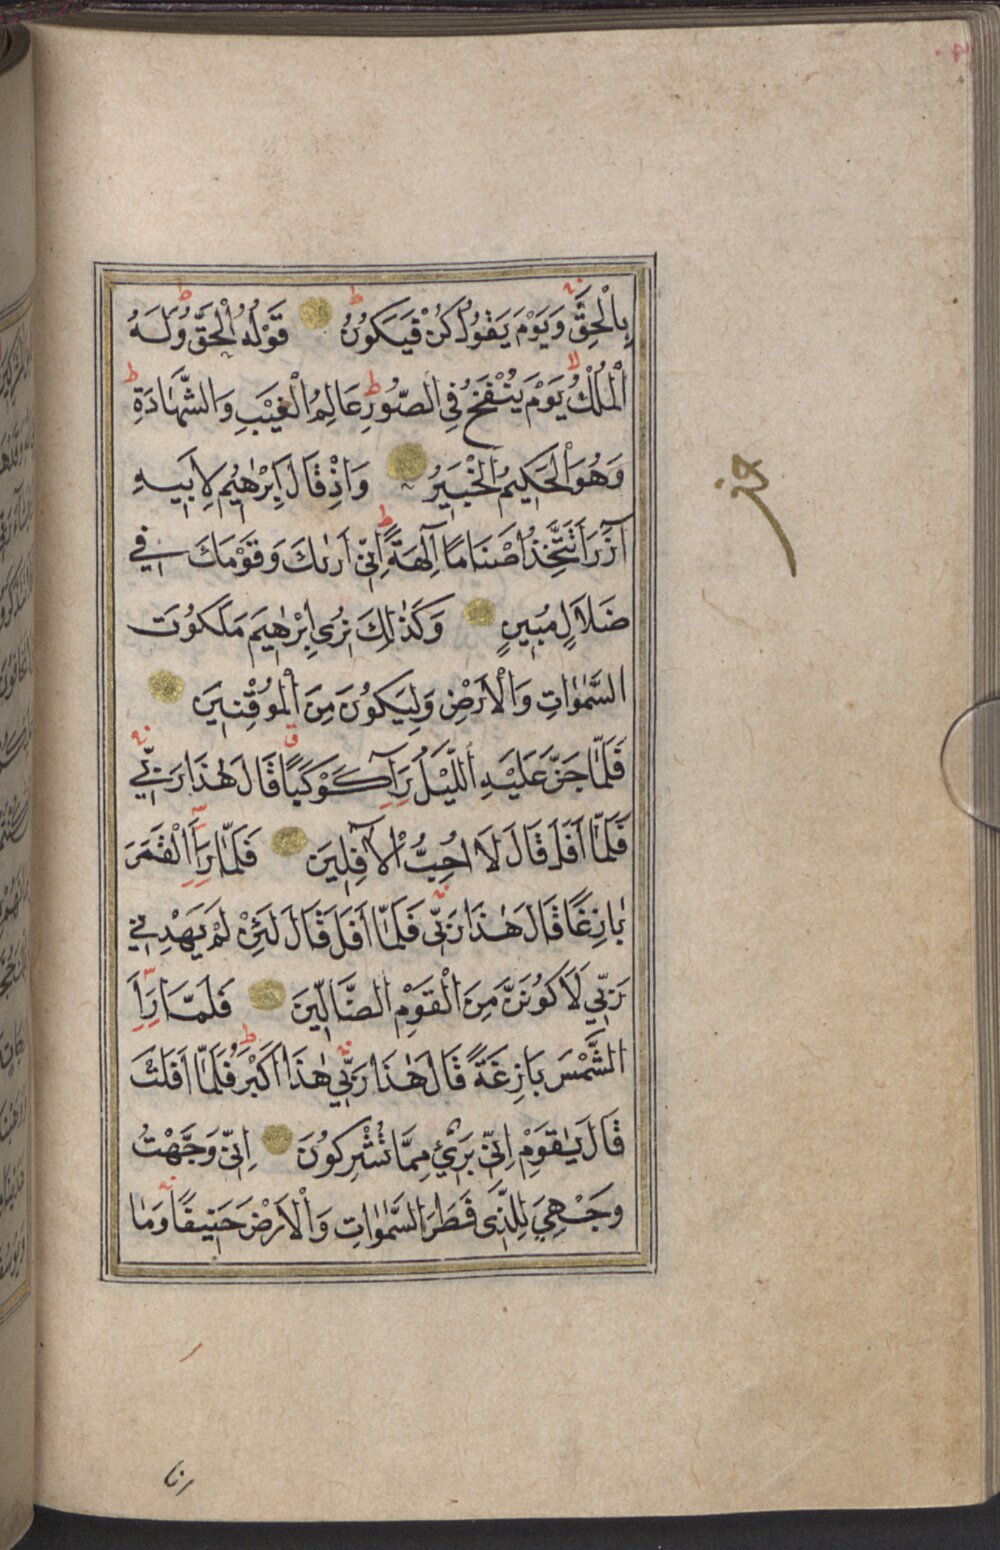 بِالْحَقِّ وَيَوْمَ يَقُولُ كُنْ فَيَكُونُ قَوْلُهُ الْحَقُّ وَلَهُ
الْمُلْكُ يَوْمَ يُنْفَخُ فِي الصُّورِ عَالِمُ الْغَيْبِ وَالشَّهَادَةِ
وَهُوَ الْحَكِيمُ الْخَبِيرُ وَاِذْ قَالَ اِبْرٰهِيمُ لِاَبِيهِ
آزَرَ اَتَتَّخِذُ اَصْنَامًا آلِهَةً اِنِّي اَرٰيكَ وَقَوْمَكَ فِي
ضَلَالٍ مُبِينٍ وَكَذٰلِكَ نُرِي اِبْرٰهِيمَ مَلَكُوتَ
السَّمٰوَاتِ وَالْاَرْضِ وَلِيَكُونَ مِنَ الْمُوقِنِينَ
فَلَمَّا جَنَّ عَلَيْهِ اللَّيْلُ رَآ كَوْكَبًا قَالَ هٰذَا رَبِّي
فَلَمَّا اَفَلَ قَالَ لَا اُحِبُّ الْآفِلِينَ فَلَمَّا رَاَ الْقَمَرَ
بَازِغًا قَالَ هٰذَا رَبِّي فَلَمَّا اَفَلَ قَالَ لَئِنْ لَمْ يَهْدِنِي
رَبِّي لَاَكُونَنَّ مِنَ الْقَوْمِ الضَّالِّينَ فَلَمَّا رَاَ
الشَّمْسَ بَازِغَةً قَالَ هٰذَا رَبِّي هٰذَا اَكْبَرُ فَلَمَّا اَفَلَتْ
قَالَ يَاقَوْمِ اِنِّي بَرِيءٌ مِمَّا تُشْرِكُونَ اِنِّي وَجَّهْتُ
وَجْهِيَ لِلَّذِي فَطَرَ السَّمٰوَاتِ وَالْاَرْضَ حَنِيفًا وَمَا
انا